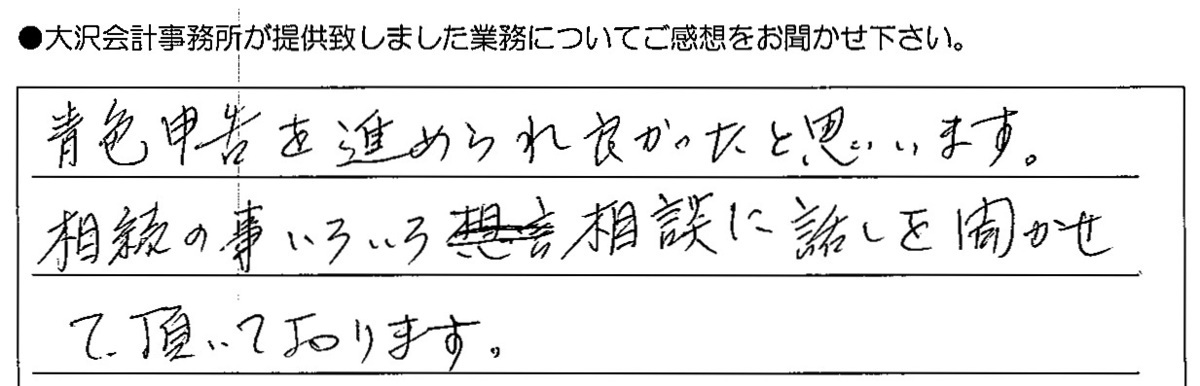 ●大沢会計事務所が提供致しました業務についてご感想をお聞かせ下さい。
青色申告を進められ良かったと思います。
相続の事いろいろ相談に話しを聞かせ
て頂いております。